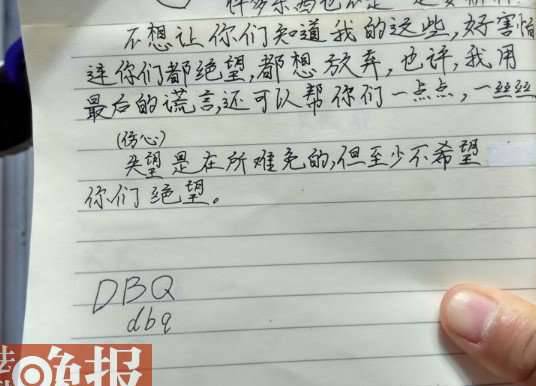 不想让你们知道我的这些,好害怕
连你们都绝望,都想放弃,也许,我用
最后的谎言,还可以帮你们一点点,一丝丝
(伤心)
失望是在所难免的,但至少不希望
你们绝望。
DBQ
dbq
晚报